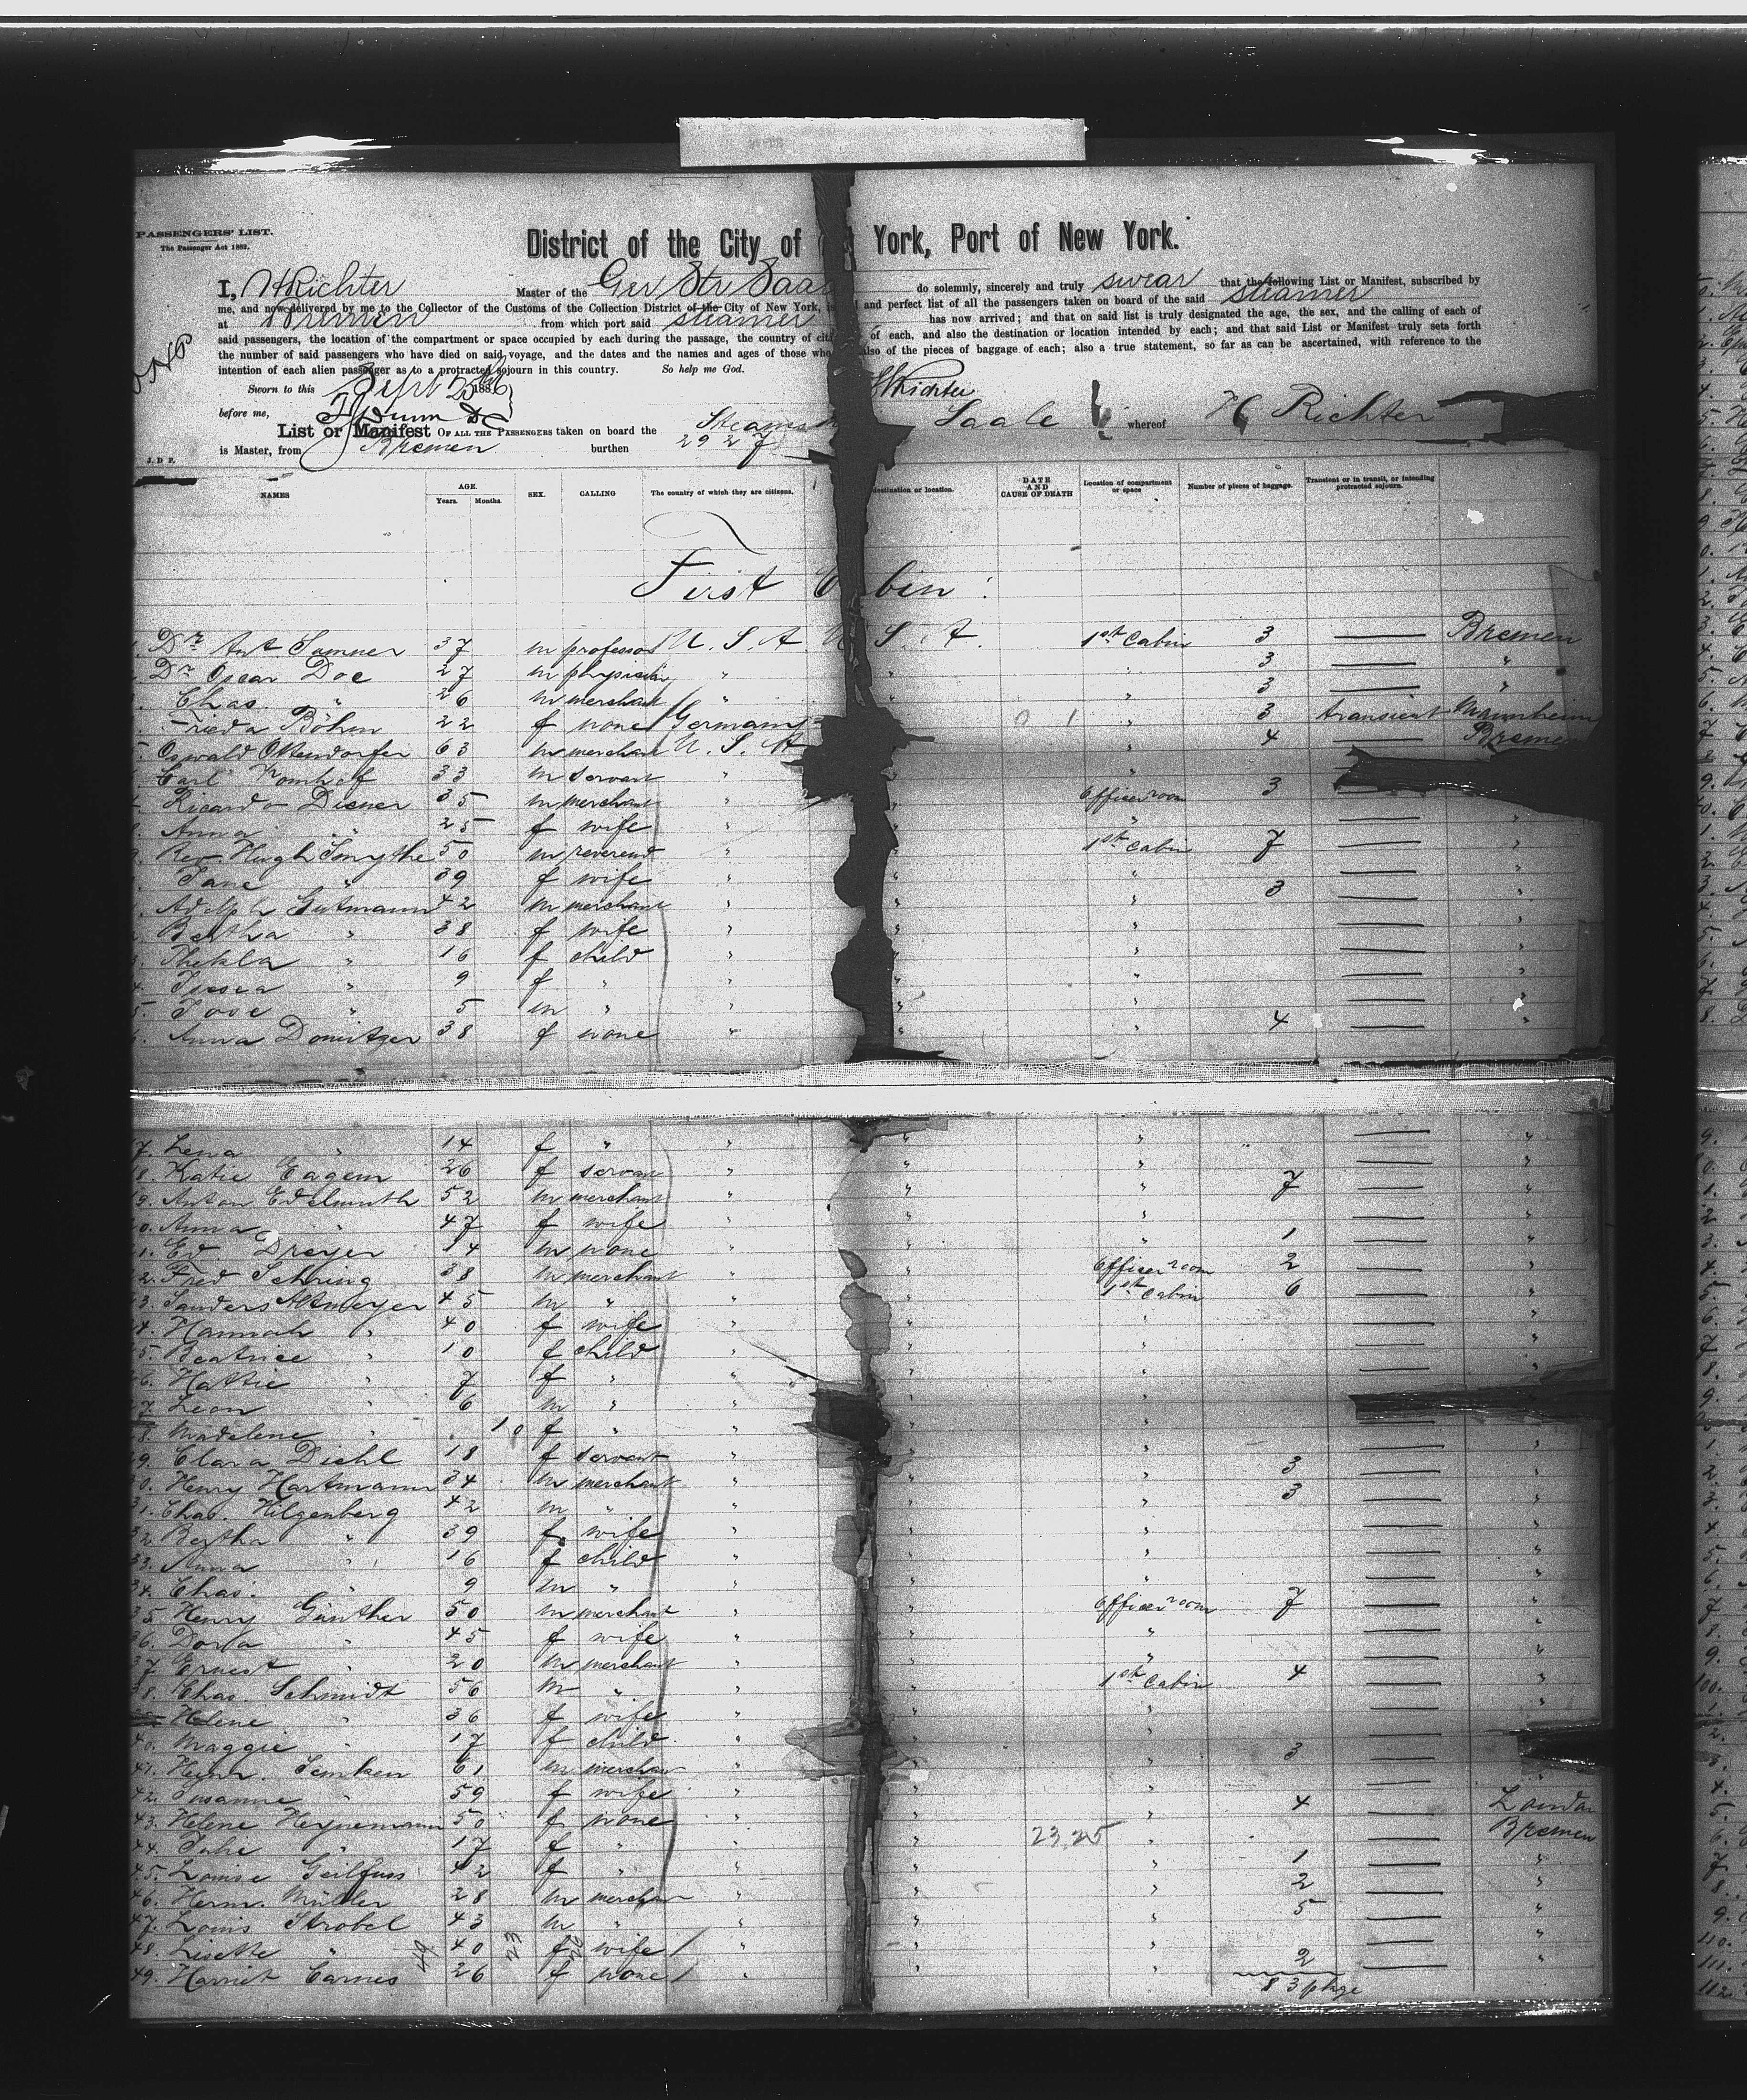 PASSENGERS' LIST.
The Passenger Act 1882.
District of the City of York, Port of New York.
I, H Richter Master of the Ger Str Saa do solemnly, sincerely and truly swear that the following List or Manifest, subscribed by
me, and now delivered by me to the Collector of the Customs of the Collection District of the City of New York, is and perfect list of all the passengers taken on board of the said steamer
at Bremen from which port said steamer has now arrived; and that on said list is truly designated the age, the sex, and the calling of each of
said passengers, the location of the compartment or space occupied by each during the passage, the country of citi of each, and also the destination or location intended by each; and that said List or Manifest truly sets forth
the number of said passengers who have died on said voyage, and the dates and the names and ages of those who also of the pieces of baggage of each; also a true statement, so far as can be ascertained, with reference to the
intention of each alien passenger as to a protracted sojourn in this country. So help me God.
Sworn to this Sept 25th 1886 H Richter
before me,
List or Manifest OF ALL THE PASSENGERS taken on board the Steams Saale whereof H Richter
is Master, from Bremen burthen 2927
J. D. P.
NAMES AGE. Years. Months. SEX. CALLING The country of which they are citizens. destination or location. DATE AND CAUSE OF DEATH Location of compartment or space Number of pieces of baggage. Transient or in transit, or intending protracted sojourn.
First C bin
Dr Ant Sumner 37 m professor U. S. A. U S. A. 1st Cabin 3 — Bremen
Dr Oscar Doe 27 m physician " " 3 — "
Chas. " 26 m merchant " " 3 — "
Frieda Böhm 22 f none Germany 0 1 " 3 transient Mannheim
5. Oswald Ottendorfer 63 m merchant U. S. A " 4 — Bremen
Carl Romhof 33 m servant " "
Ricardo Diener 35 m merchant " " Officer room 3 —
Anna " 25 f wife " " " — "
Rev Hugh Smythe 50 m reverend " " 1st Cabin 7 — "
Jane " 39 f wife " " — "
Adolph Gutmann 42 m merchant " " " 3 — "
Bertha " 38 f wife " " " — "
Thekla " 16 f child " " " — "
4. " 9 f " " " " — "
5. " 5 m " " " " — "
Anna Domitzer 38 f none " " " 4 — "
7. Lena " 14 f " " " " — "
8. Katie Eagem 26 f servant " " " — "
9. Anton Edelmuth 52 m merchant " " " 7 — "
0. Anna " 47 f wife " " " — "
1. Ed Dreyer 14 m none " " " 1 — "
2. Fred Sehring 38 m merchant " " Officer room 2 — "
3. Sanders Altmeyer 45 m " " " 1st Cabin 6 — "
4. Hannah " 40 f wife " " " — "
5. Beatrice " 10 f child " " " — "
6. Hattie " 7 f " " " " — "
7. Leon " 6 m " " " —
8. Madelene " 10 f " " " " — "
9. Clara Diehl 18 f servant " " " — "
30. Henry Hartmann 34 m merchant " " " 3 — "
31. Chas. Hilgenberg 42 m " " " " 3 — "
32 Bertha " 39 f wife " " " — "
33. Anna " 16 f child " " " — "
34. Chas. " 9 m " " " " — "
35 Henry Günther 50 m merchant " " Officer room 7 — "
36. Dora " 45 f wife " " " — "
37 Ernest " 20 m merchant " " " — "
38. Chas. Schmidt 56 m " " " 1st Cabin 4 — "
Helene " 36 f wife " " " — "
40. Maggie " 17 f child " " " —
41. Heinr. Semken 61 m merchant " " " 3 — "
42. Susanne " 59 f wife " " " — "
43. Helene Heynemann 50 f none " " " 4 — London
44. Julie " 17 f " " " 23.25 " — Bremen
45. Louise Geilfuss 42 f " " " " 1 — "
46. Herm. Müller 28 m merchant " " " 2 — "
47. Louis Strobel 43 m " " " " 5 — "
48. Lisette " 40 f wife " " " — "
49. Harriet Carnes 26 f none " " " 2 — "
49 23 26
83 pkge